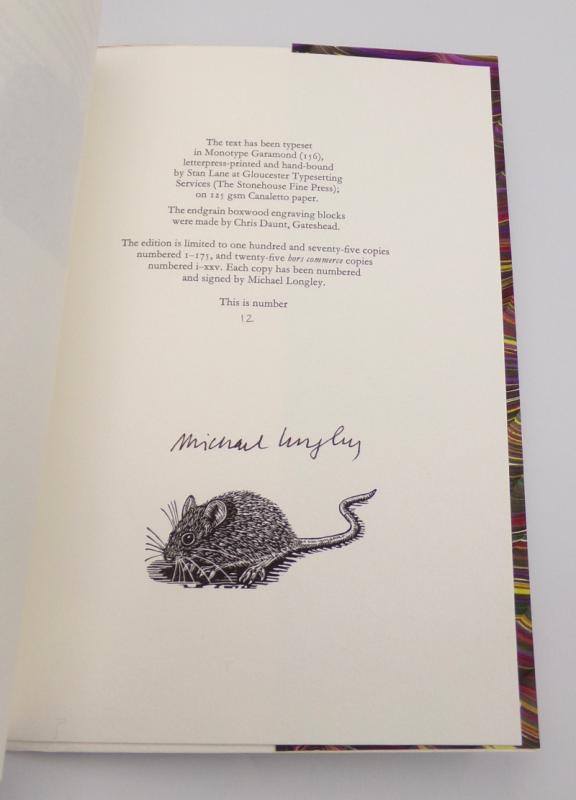 The text has been typeset
in Monotype Garamond (156),
letterpress-printed and hand-bound
by Stan Lane at Gloucester Typesetting
Services (The Stonehouse Fine Press);
on 125 gsm Canaletto paper.
The endgrain boxwood engraving blocks
were made by Chris Daunt, Gateshead.
The edition is limited to one hundred and seventy-five copies
numbered 1–175, and twenty-five hors commerce copies
numbered i–xxv. Each copy has been numbered
and signed by Michael Longley.
This is number
12
Michael Longley